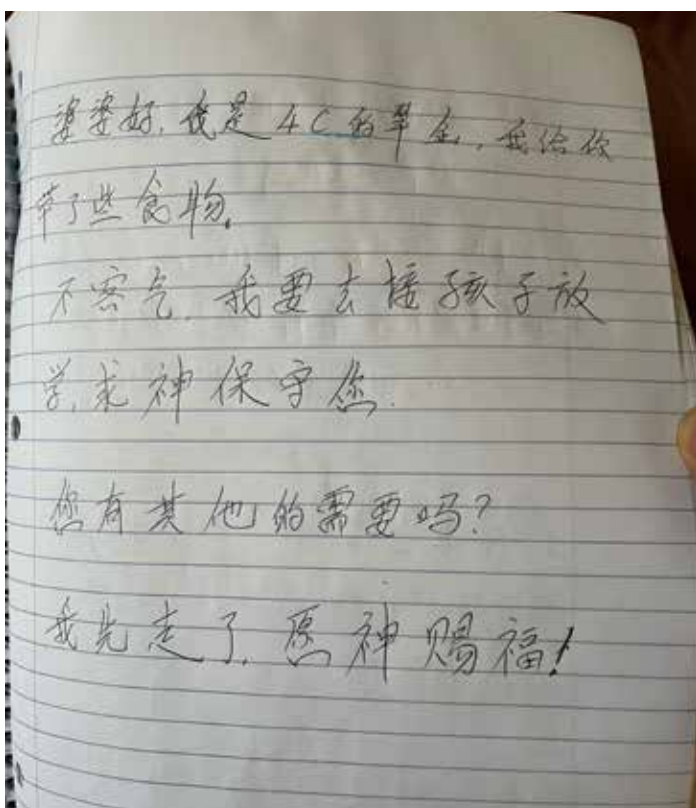 婆婆好,我是4C的翠金,我给你
带了些食物。
不客气,我要去接孩子放
学,求神保守您.
您有其他的需要吗?
我先走了,愿神赐福!